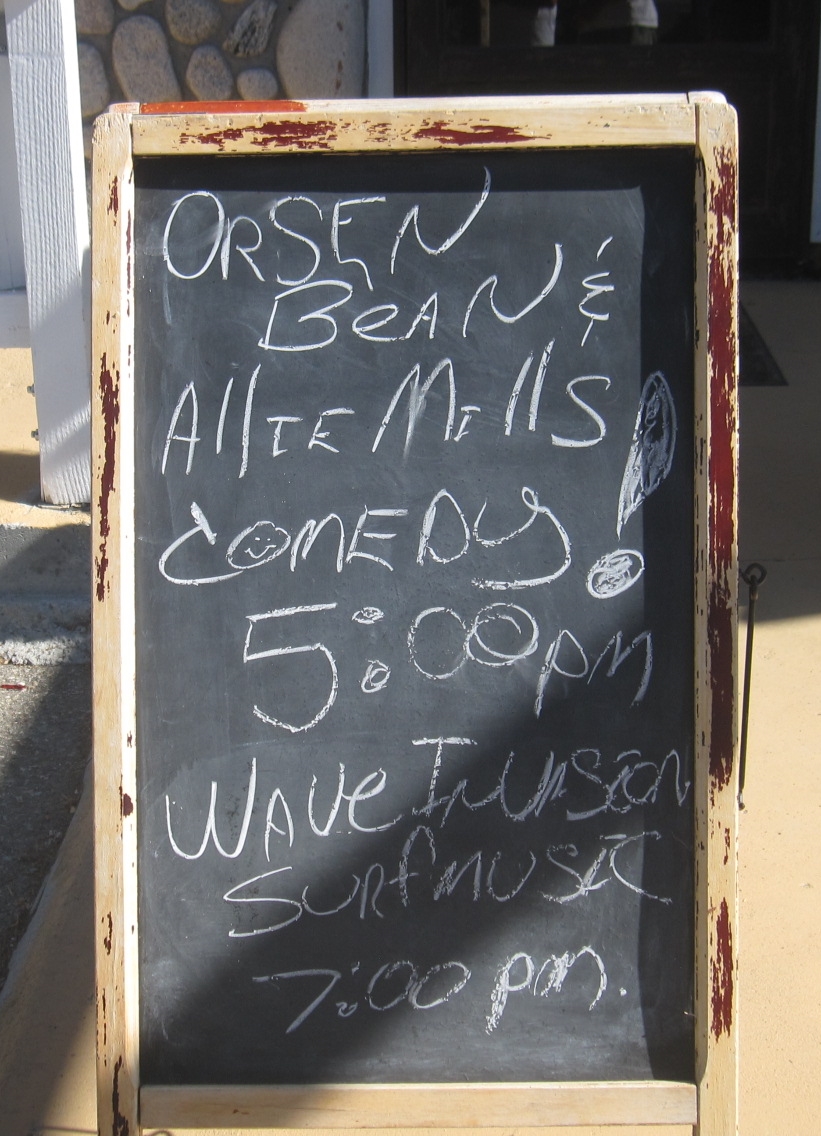 ORSEN
BEAN &
Allie Mills
COMEDY!
5:00 pm
WAVE INVASION
SURF MUSIC
7:00 pm.